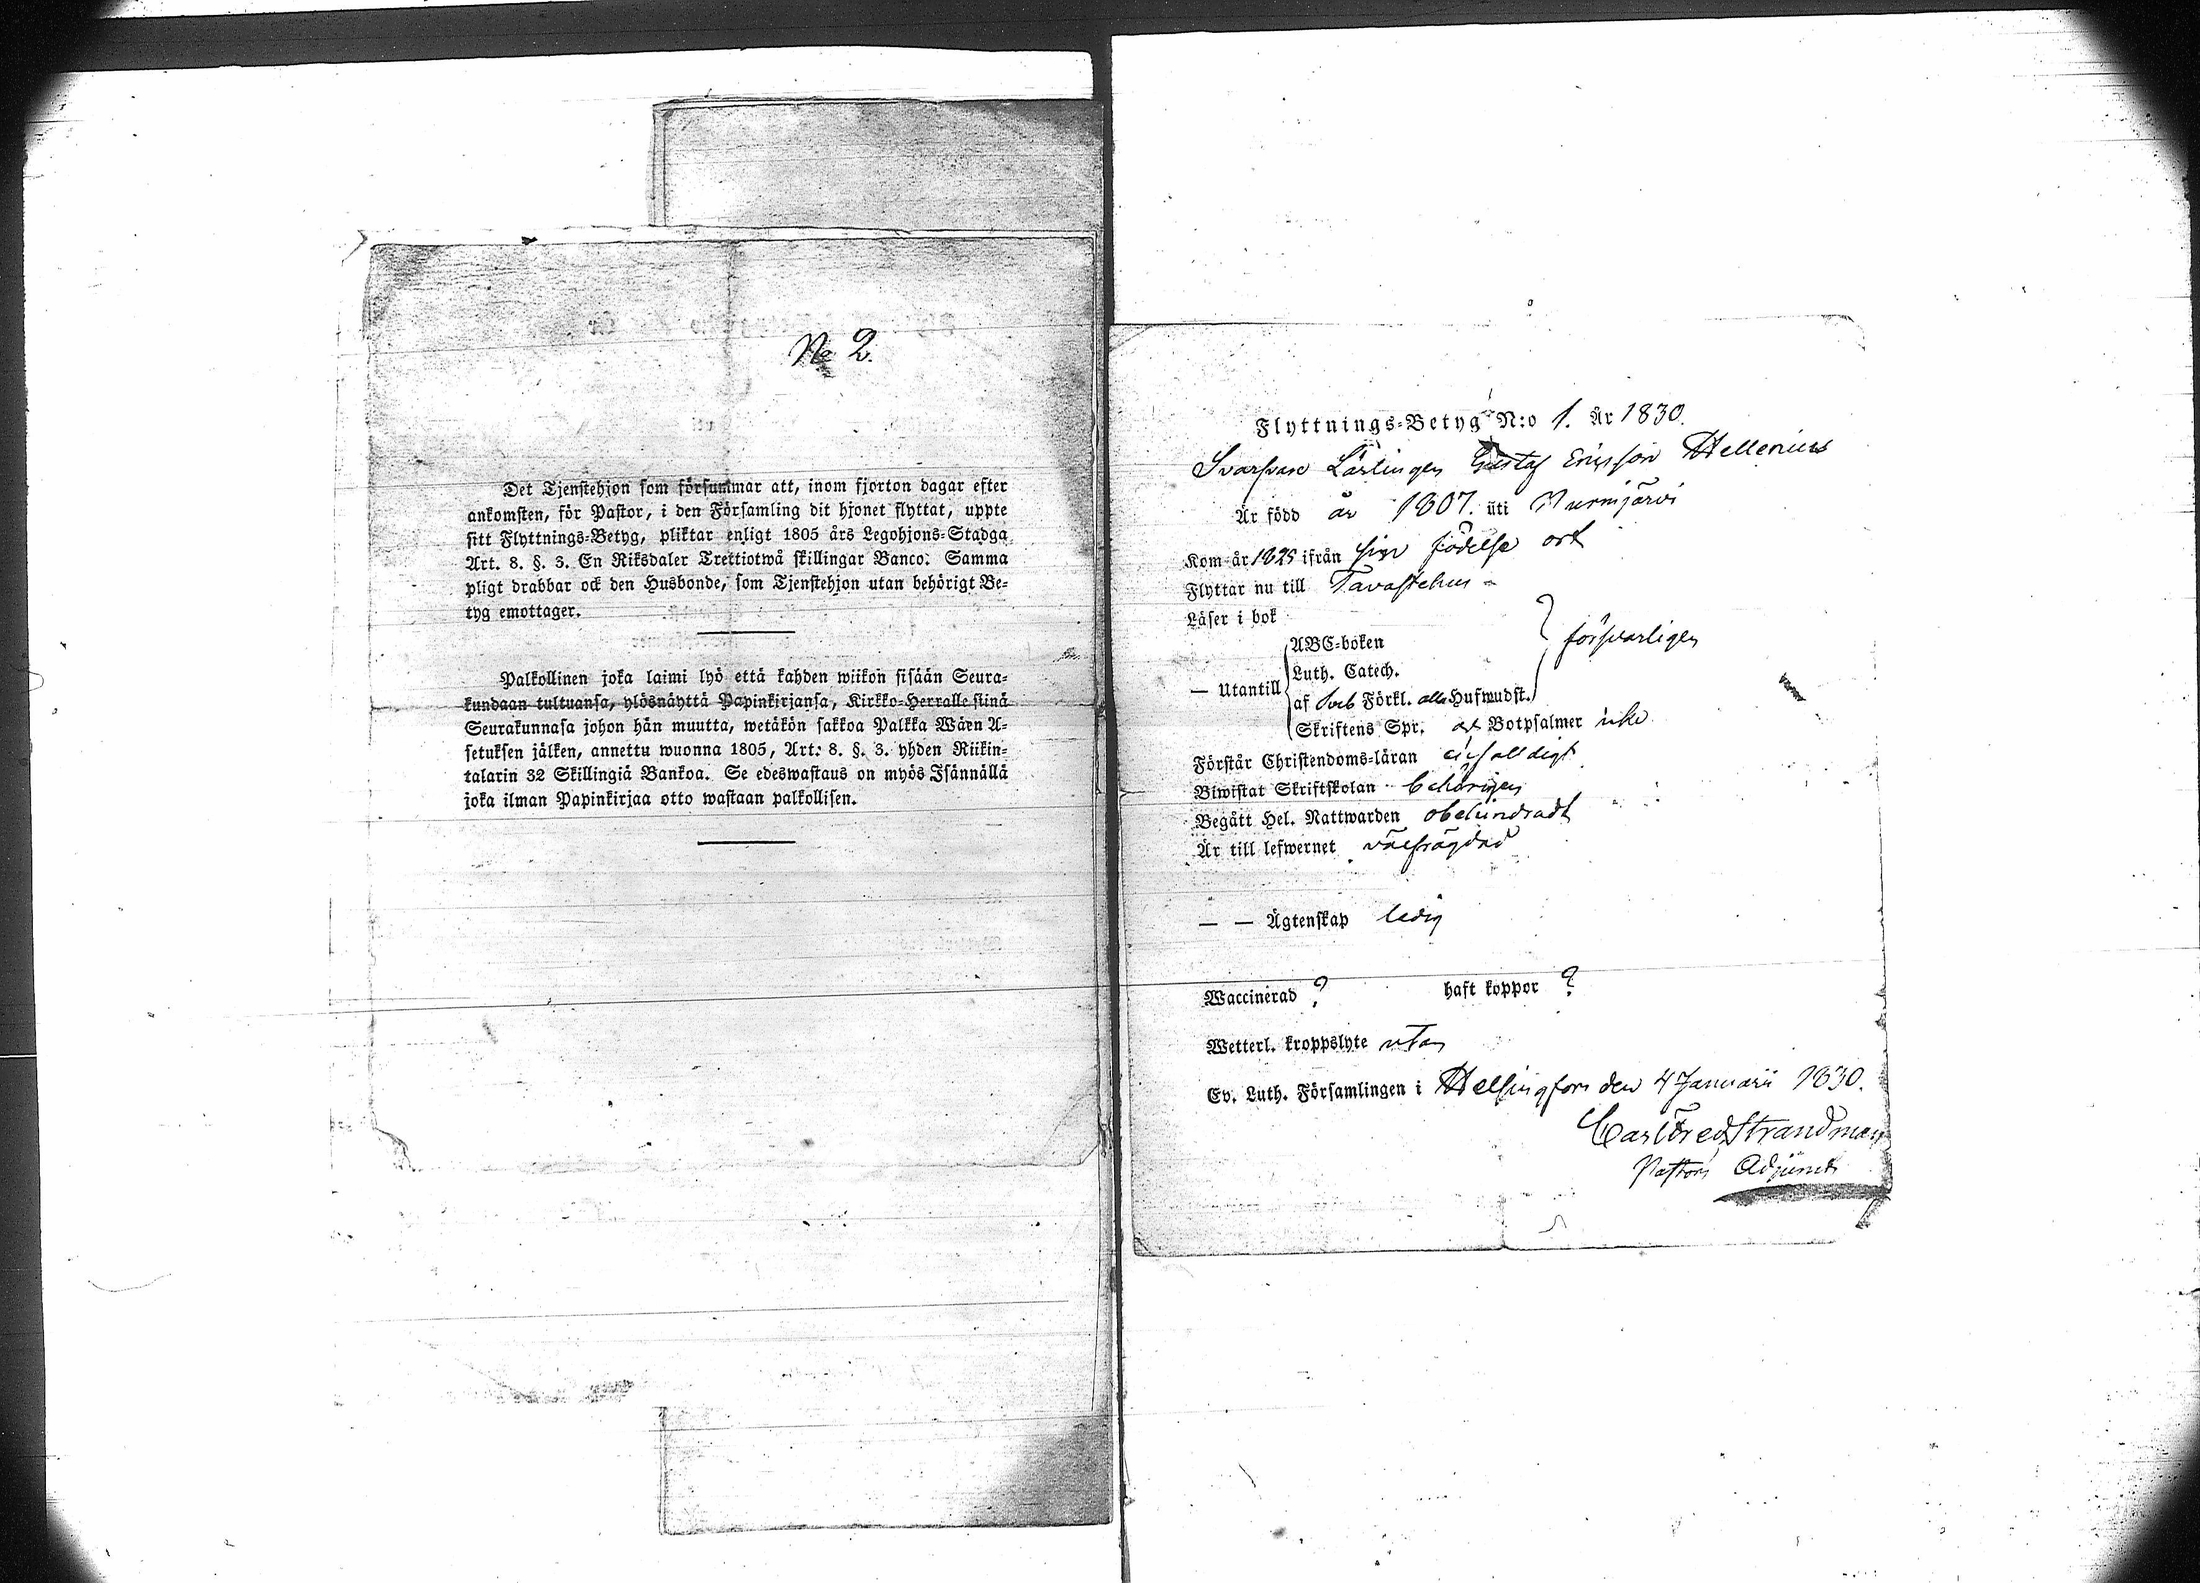 No 2.
Det Tjenstehjon som försummar att, inom fjorton dagar efter
ankomsten, för Pastor, i den Församling dit hjonet flyttat, uppte
sitt Flyttnings-Betyg, pliktar enligt 1805 års Legohjons-Stadga
Art. 8. §. 3. En Riksdaler Trettiotwå skillingar Banco. Samma
pligt drabbar ock den Husbonde, som Tjenstehjon utan behörigt Be-
tyg emottager.
Palkollinen joka laimi lyö että kahden wiikon sisään Seura-
kundaan tultuansa, ylösnäyttä Papinkirjansa, Kirkko-Herralle siinä
Seurakunnasa johon hän muutta, wetäkön sakkoa Palkka Wäen A-
setuksen jälken, annettu wuonna 1805, Art. 8. §. 3. yhden Riikin-
talarin 32 Skillingiä Bankoa. Se edeswastaus on myös Isännällä
joka ilman Papinkirjaa otto wastaan palkollisen.
Flyttnings-Betyg N:o 1. År 1830.
Svarfvare Lärlingen Gustaf Ericsson Hellenius
Är född år 1807. uti Nurmijärvi
Kom år 1825 ifrån sin födelse ort
Flyttar nu till Tavastehus
Läser i bok
ABC-boken
försvarligen
Luth. Catech.
— Utantill
af Sveb Förkl. alla Hufwudst.
Skriftens Spr. af Botpsalmer icke
Förstår Christendoms-läran enfalldigt
Biwistat Skriftskolan behörigen
Begått Hel. Nattwarden obehindradt
Är till lefwernet välfrägdad
— — Ägtenskap ledig
Waccinerad ? haft koppor ?
Wetterl. kroppslyte utan
Ev. Luth. Församlingen i Helsingfors den 4 Januarii 1830.
Carl Fred Strandman
Pastors Adjunct